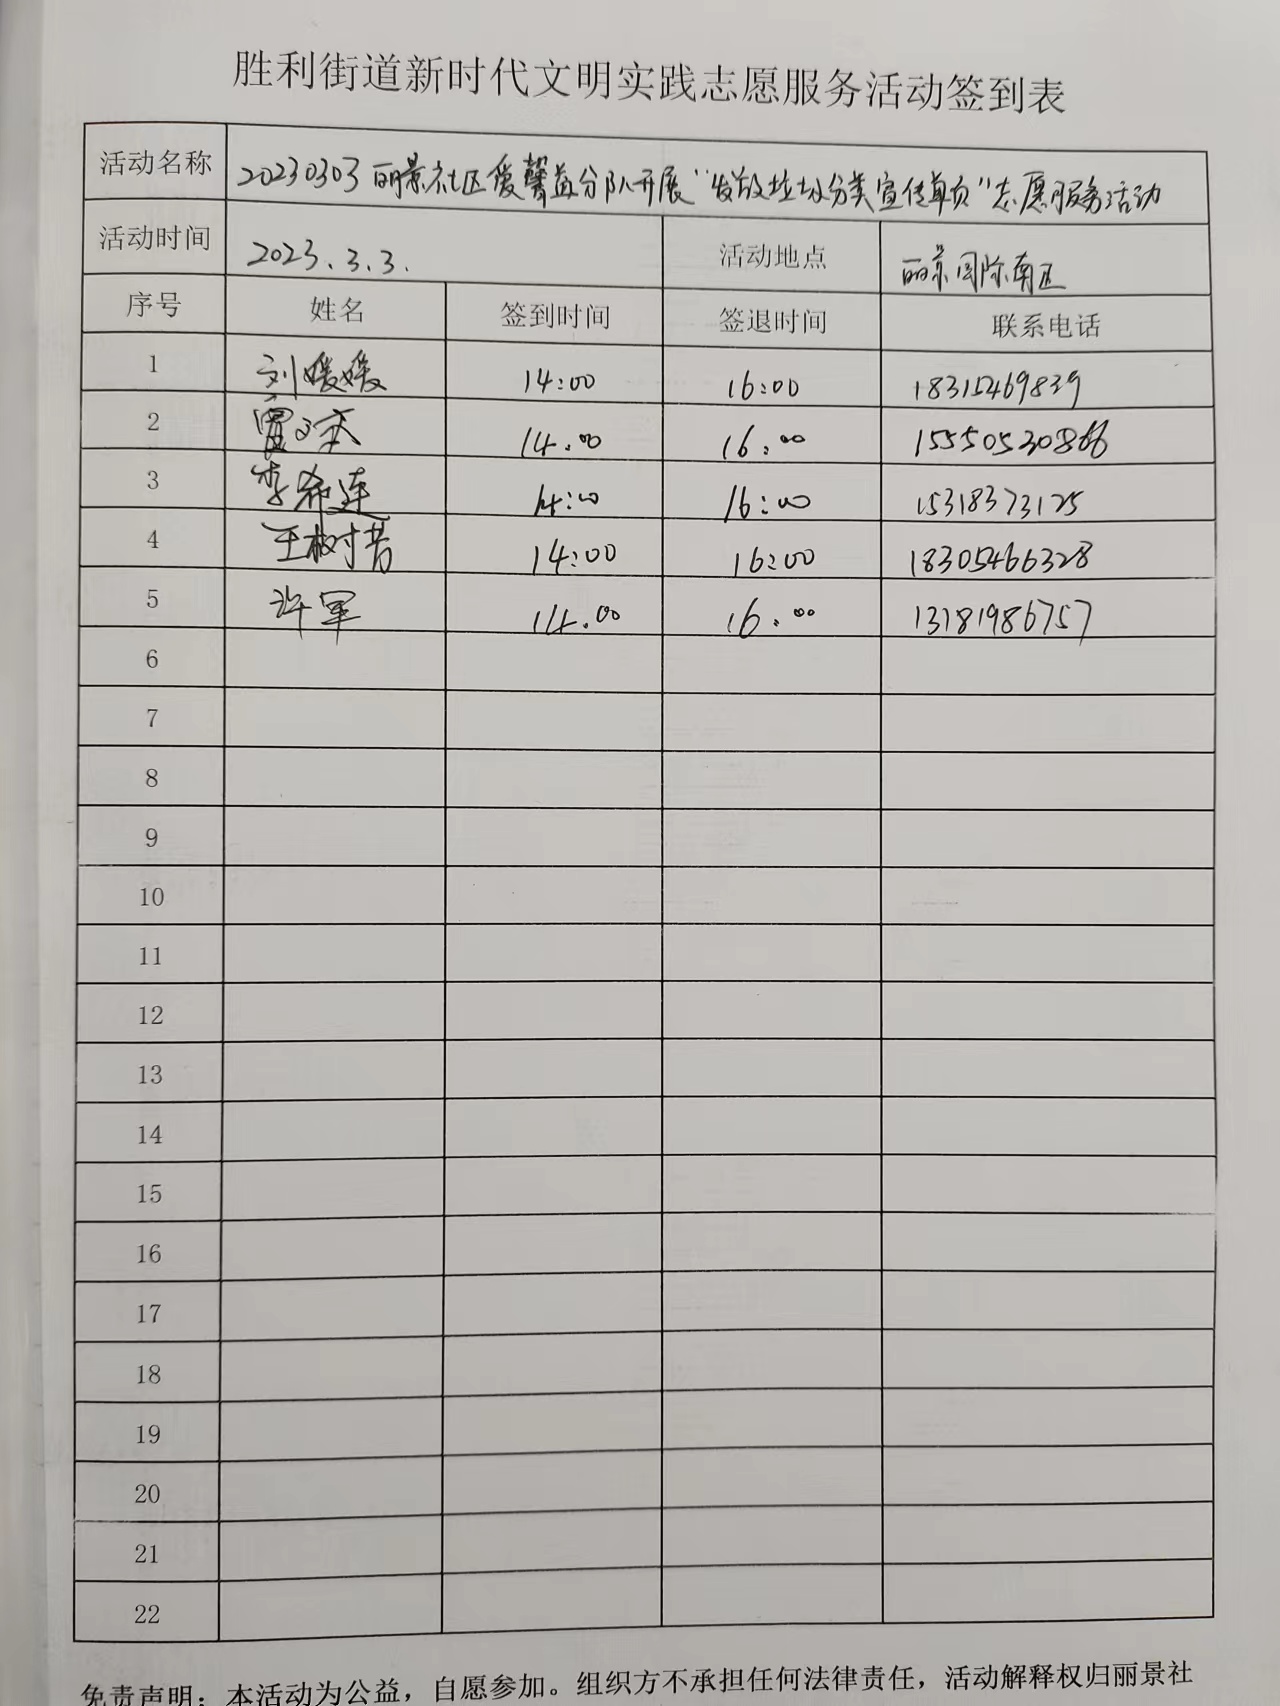 胜利街道新时代文明实践志愿服务活动签到表
活动名称 20230303丽景社区爱馨益分队开展“发放垃圾分类宣传单页”志愿服务活动
活动时间 2023.3.3. 活动地点 丽景国际南区
序号 姓名 签到时间 签退时间 联系电话
1 刘媛媛 14:00 16:00 18315469839
2 14.00 16:00 15550530866
3 李希莲 14:00 16:00 15318373125
4 王树昔 14:00 16:00 18305466328
5 许军 14.00 16.00 13181986757
6
7
8
9
10
11
12
13
14
15
16
17
18
19
20
21
22
免责声明：本活动为公益，自愿参加。组织方不承担任何法律责任，活动解释权归丽景社